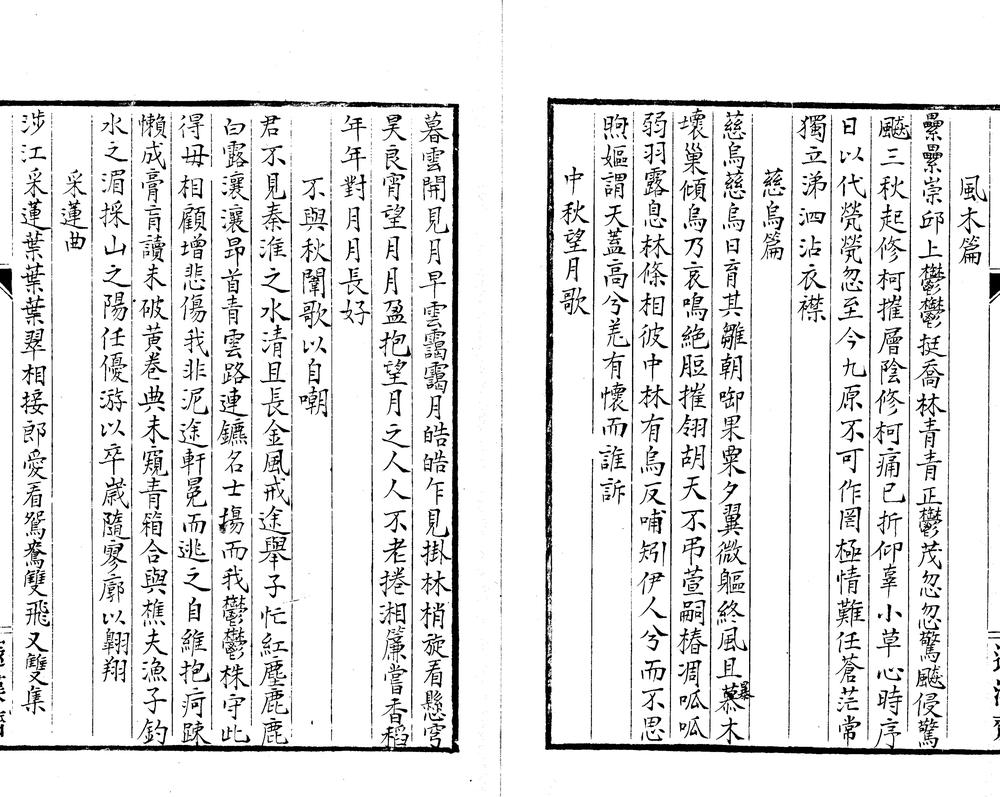 風木篇
纍纍崇邱上鬱鬱挺喬林青青正鬱茂忽忽驚飈侵驚
飈三秋起修柯摧層陰修柯痛已折仰辜小草心時序
日以代煢煢忽至今九原不可作罔極情難任蒼茫常
獨立涕泗沾衣襟
慈烏篇
慈烏慈烏日育其雛朝啣果粟夕翼微軀終風且暴木
壞巢傾烏乃哀鳴絶脰摧翎胡天不弔萱嗣椿凋呱呱
弱羽露息林條相彼中林有烏反哺矧伊人兮而不思
煦嫗謂天蓋高兮羌有懷而誰訴
中秋望月歌
暮雲開見月早雲靄靄月皓皓乍見掛林梢旋看懸穹
昊良宵望月月盈抱望月之人人不老捲湘簾嘗香稻
年年對月月長好
不與秋闈歌以自嘲
君不見秦淮之水清且長金風戒途舉子忙紅塵鹿鹿
白露瀼瀼昂首青雲路連鑣名士揚而我鬱鬱株守此
得毋相顧增悲傷我非泥途軒冕而逃之自維抱疴踈
懶成膏肓讀未破黄卷典未窺青箱合與樵夫漁子釣
水之湄採山之陽任優游以卒歳隨寥廓以翱翔
采蓮曲
涉江采蓮葉葉葉翠相接郎愛看鴛鴦雙飛又雙集